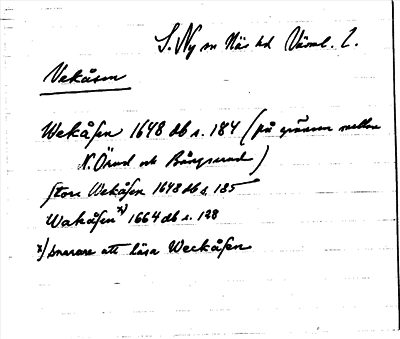 S. Ny sn Näs hd Värml. l.
Vekåsen
Wekåsen 1648 db s. 184 (på gränsen mellan
N. Örud och Bångserud)
store Wekåsen 1648 db s. 185
Wakåsen x) 1664 db s. 128
x) snarare att läsa Weckåsen